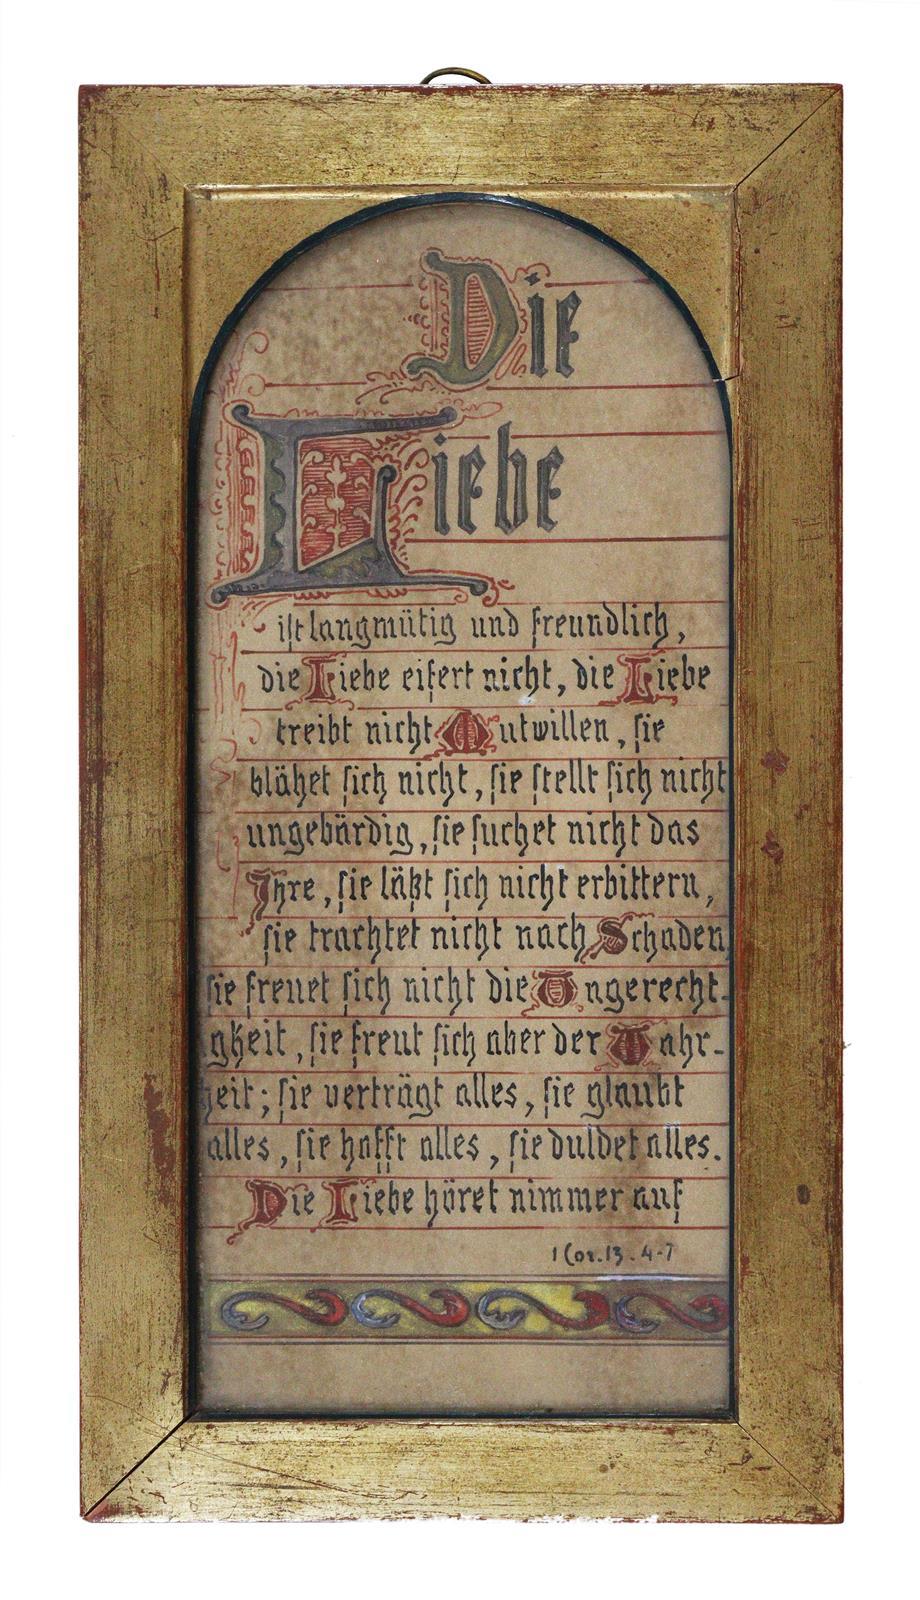 Die
Liebe
ist langmütig und freundlich,
die Liebe eifert nicht, die Liebe
treibt nicht Mutwillen, sie
blähet sich nicht, sie stellt sich nicht
ungebärdig, sie suchet nicht das
Ihre, sie läßt sich nicht erbittern,
sie trachtet nicht nach Schaden,
sie freuet sich nicht die Ungerecht-
igkeit, sie freut sich aber der Wahr-
heit; sie verträgt alles, sie glaubt
alles, sie hofft alles, sie duldet alles.
Die Liebe höret nimmer auf
1 Cor. 13. 4-7